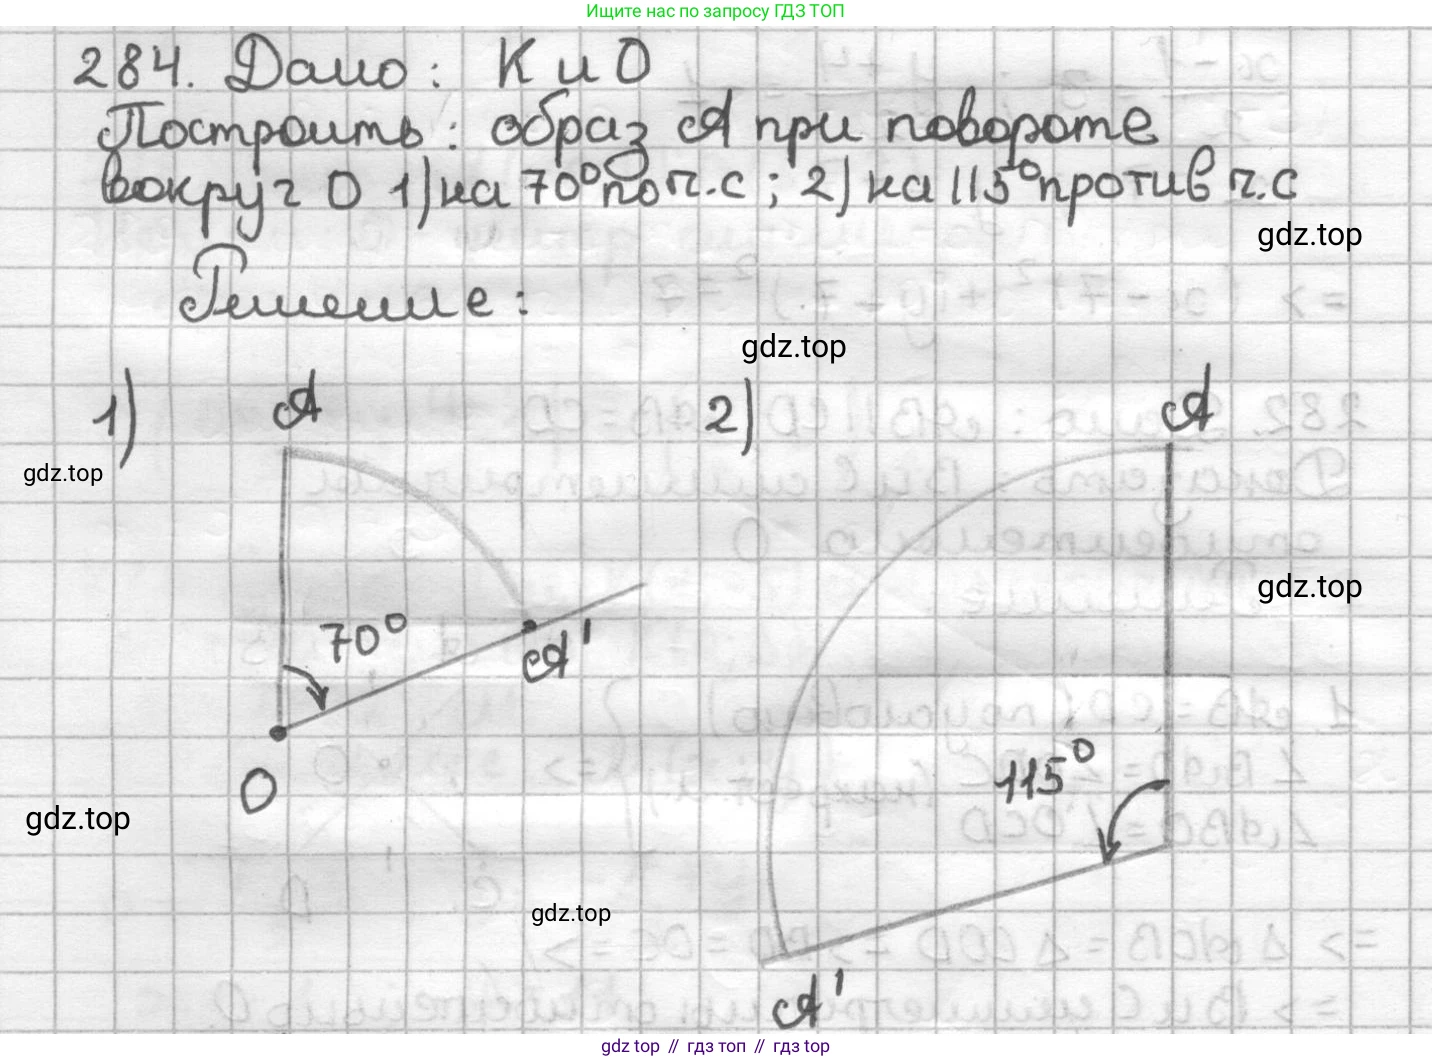 Ищите нас по запросу ГДЗ ТОП
284. Дано: К и О
Построить: образ А при повороте
вокруг О 1) на 70° по ч.с ; 2) на 115° против ч.с
gdz.top
Решение:
gdz.top
1) А
2) А
gdz.top
gdz.top
70°
А'
115°
О
gdz.top
gdz.top
А'
gdz top // гдз топ // гдз top